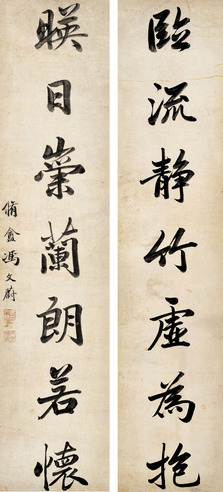 臨流靜竹虛為抱
暎日崇蘭朗若懷
脩盦馮文蔚